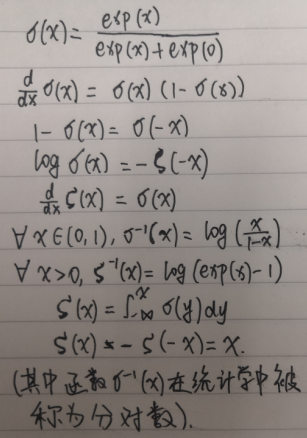 σ(x) = exp(x) / (exp(x) + exp(0))
d/dx σ(x) = σ(x) (1 - σ(x))
1 - σ(x) = σ(-x)
log σ(x) = -ζ(-x)
d/dx ζ(x) = σ(x)
∀ x ∈ (0, 1), σ⁻¹(x) = log(x/(1-x))
∀ x > 0, ζ⁻¹(x) = log(exp(x) - 1)
ζ(x) = ∫_{-∞}^{x} σ(y) dy
ζ(x) - ζ(-x) = x.
(其中函数σ⁻¹(x)在统计学中被
称为分对数).